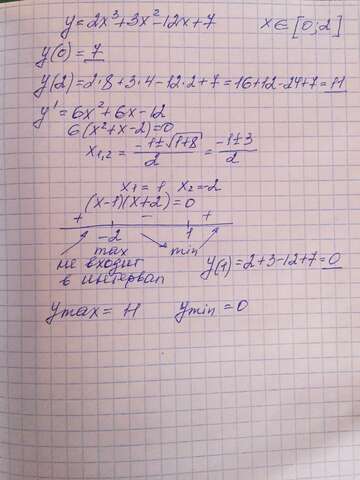 y=2x³+3x²-12x+7    x∈[0;2]
y(0)=7
y(2)=2·8+3·4-12·2+7=16+12-24+7=11
y'=6x²+6x-12
6(x²+x-2)=0
x₁,₂ = (-1±√(1+8))/2 = (-1±3)/2
x₁=1 x₂=-2
(x-1)(x+2)=0
+ - +
-2 1
max min
не входит
в интервал
y(1)=2+3-12+7=0
ymax = 11    ymin=0